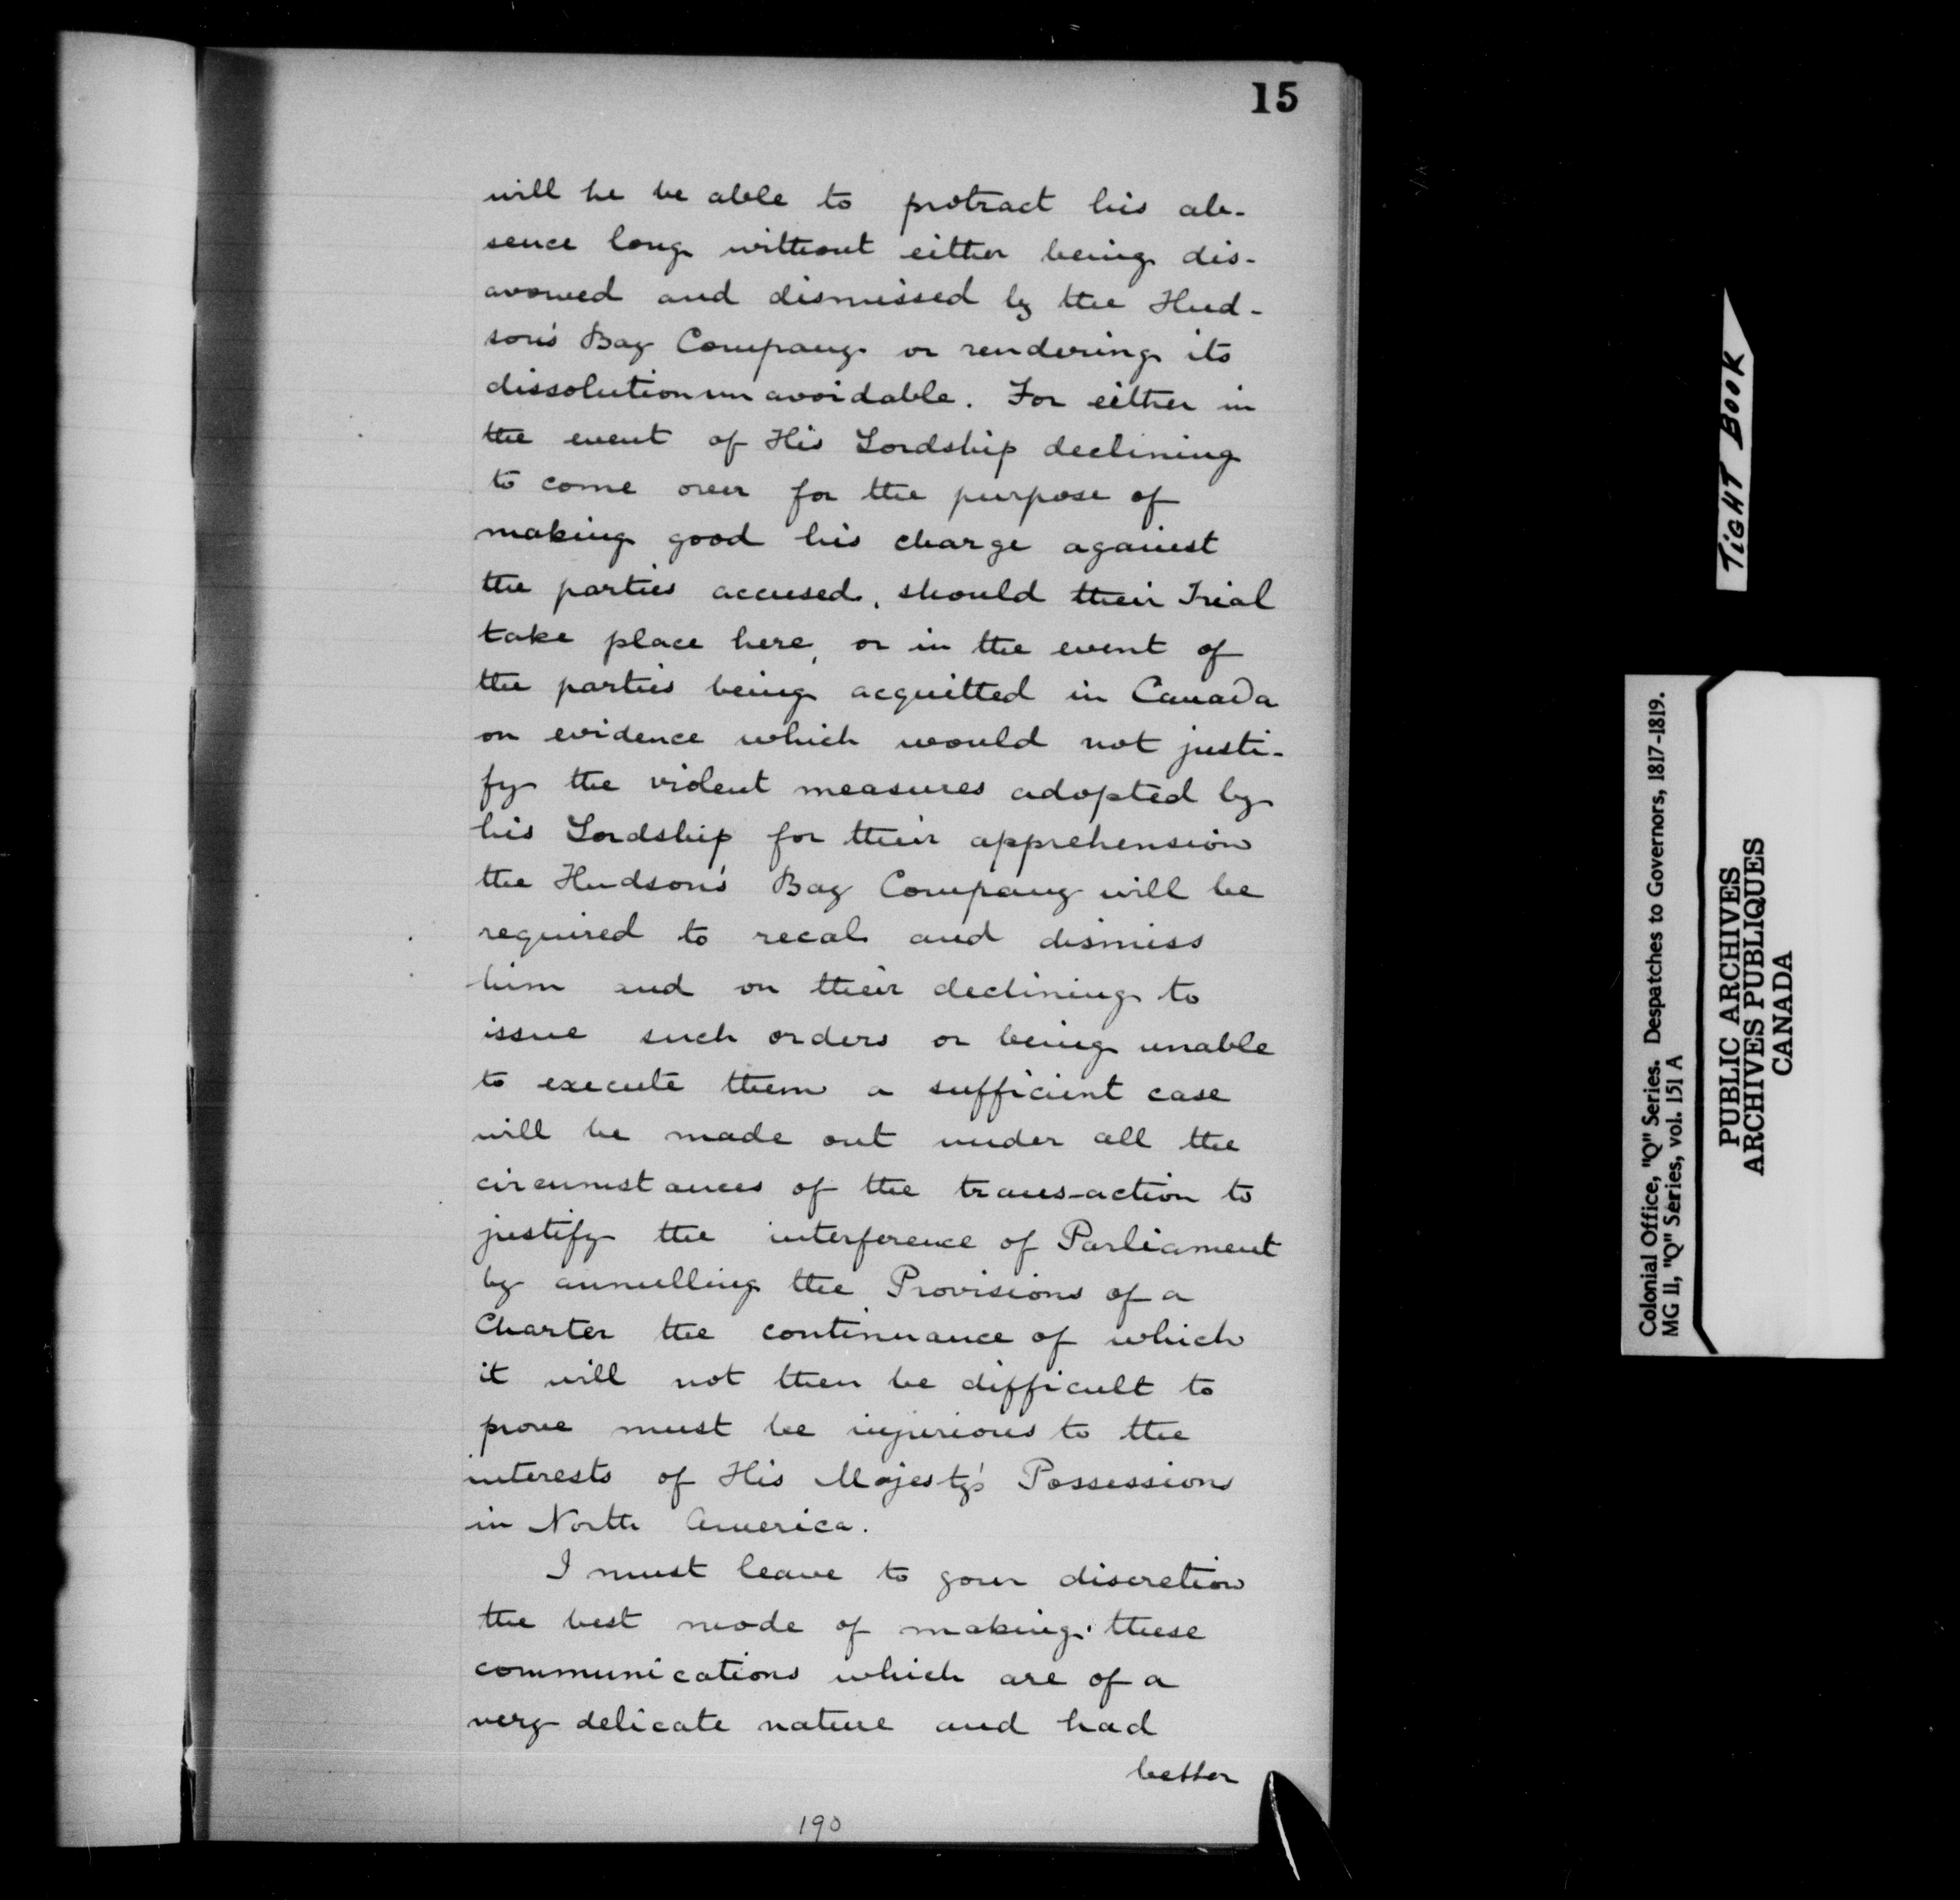 15
will he be able to protract his ab-
sence long without either being dis-
avowed and dismissed by the Hud-
son's Bay Company or rendering its
dissolution unavoidable. For either in
the event of His Lordship declining
to come over for the purpose of
making good his charge against
the parties accused, should their Trial
take place here, or in the event of
the parties being acquitted in Canada
on evidence which would not justi-
fy the violent measures adopted by
his Lordship for their apprehension
the Hudson's Bay Company will be
required to recal and dismiss
him and on their declining to
issue such orders or being unable
to execute them a sufficient case
will be made out under all the
circumstances of the trans-action to
justify the interference of Parliament
by annulling the Provisions of a
Charter the continuance of which
it will not then be difficult to
prove must be injurious to the
interests of His Majesty's Possessions
in North America.
I must leave to your discretion
the best mode of making these
communications which are of a
very delicate nature and had
better
190
TIGHT BOOK
Colonial Office, "Q" Series. Despatches to Governors, 1817-1819.
MG 11, "Q" Series, vol. 151 A
PUBLIC ARCHIVES
ARCHIVES PUBLIQUES
CANADA